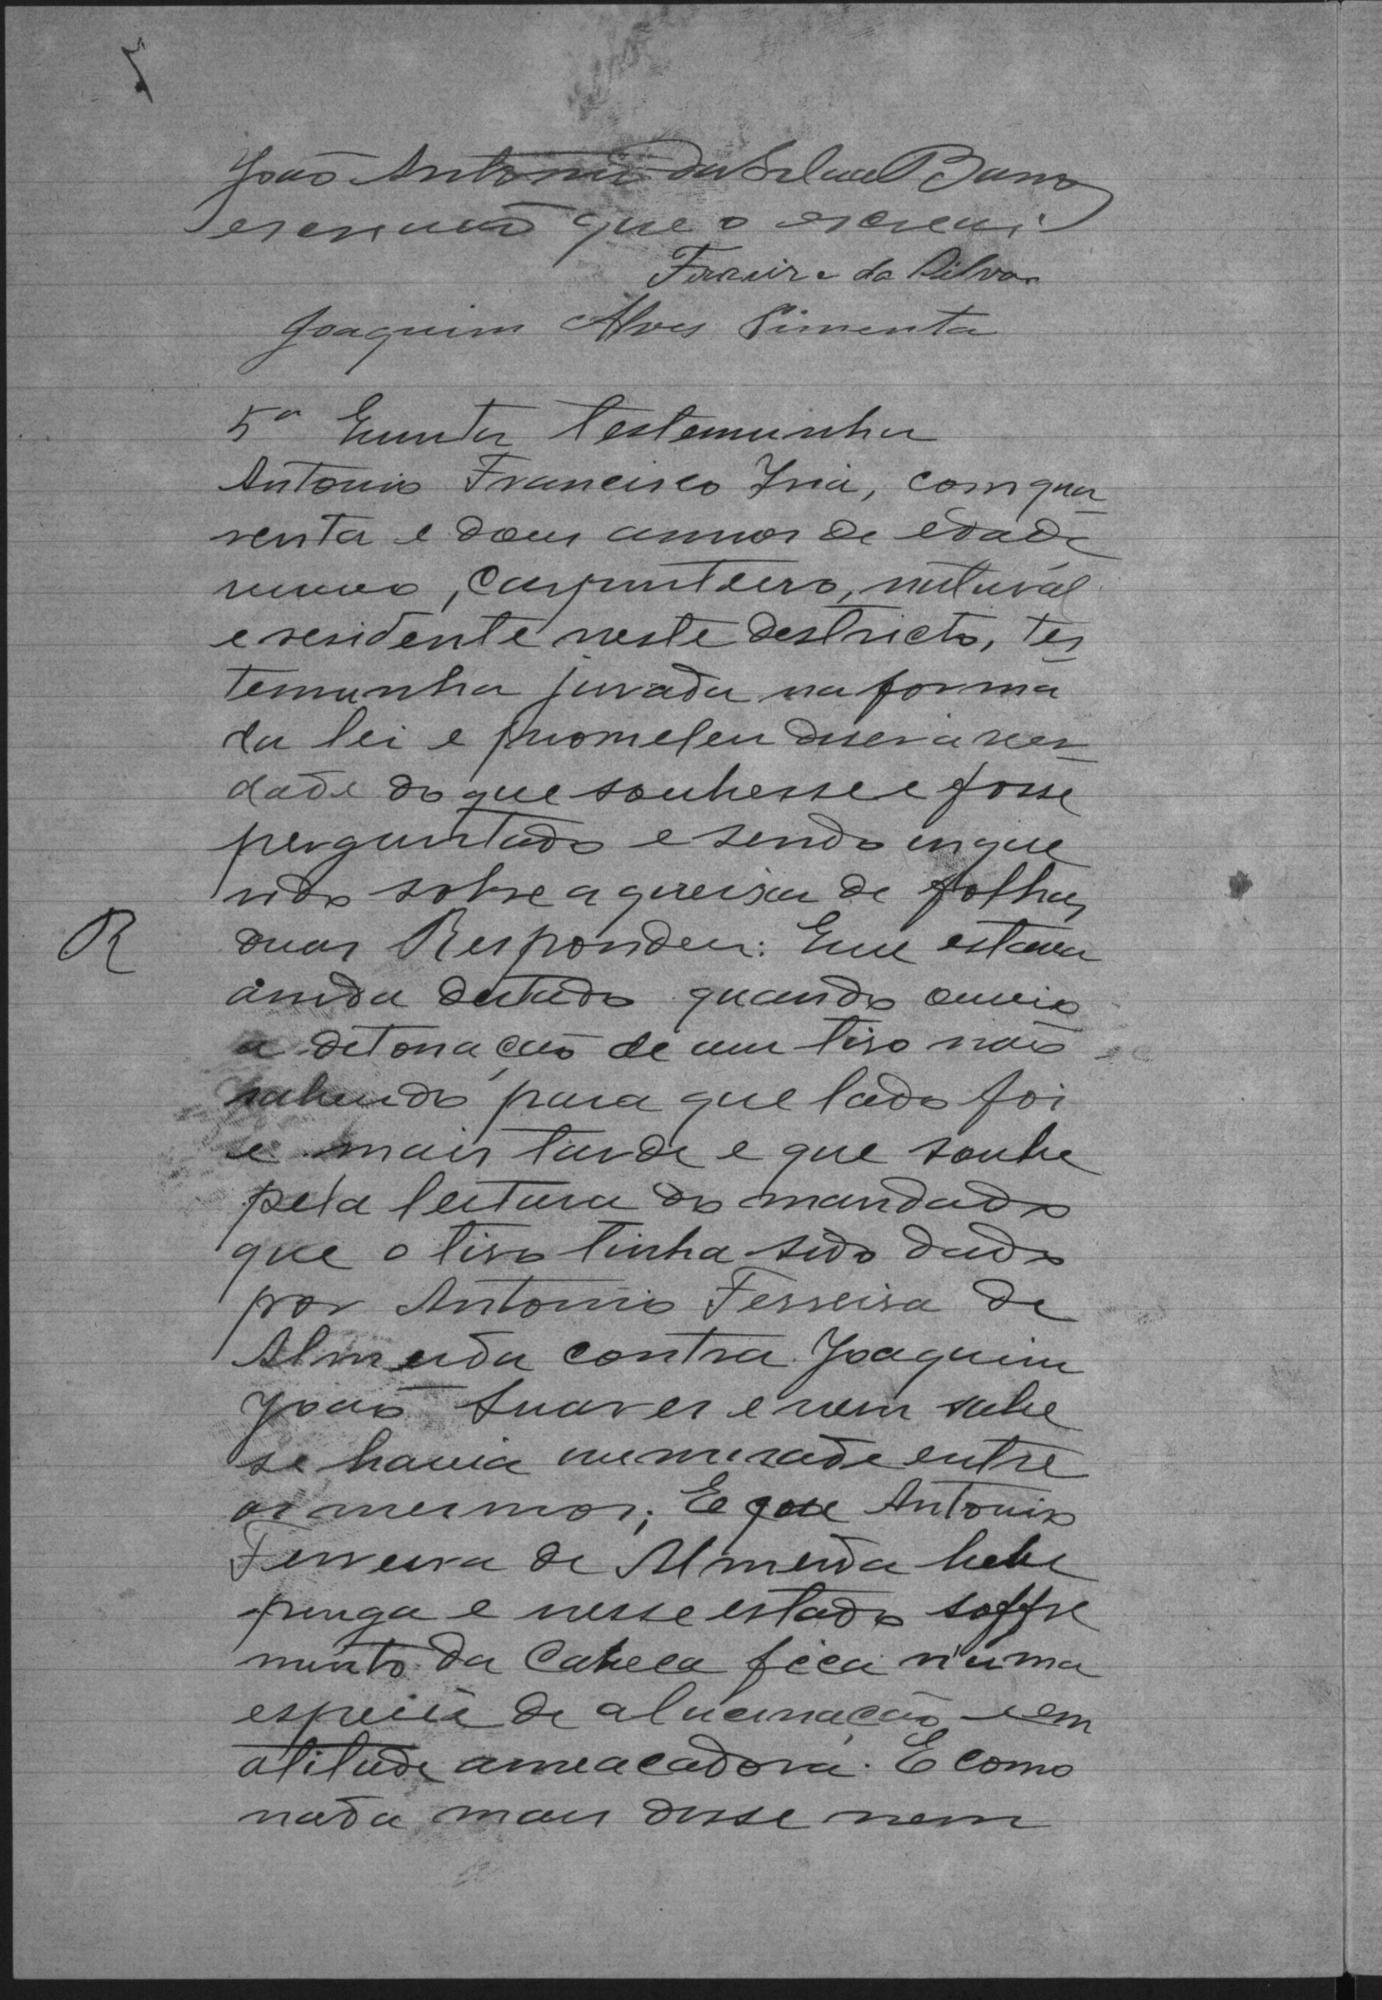 João Antonio da Silva Barros
escrivão que o escrevi
Ferreira da Silva
Joaquim Alves Pimenta
5ª Quinta testemunha
Antonio Francisco Iria, com qua-
renta e dous annos de edade
viuvo, carpinteiro, natural
e residente neste destricto, tes
temunha jurada na forma
da lei e prometeu diser a ver-
dade do que soubesse e fosse
perguntado e sendo inque
rido sobre a queixa de folhas
duas Respondeu: Que estava
R
ainda deitado quando ouvio
a detonação de um tiro não
sabendo para que lado foi
e mais tarde e que soube
pela leitura do mandado
que o tiro tinha sido dado
por Antonio Ferreira de
Almeida contra Joaquim
João Soares e nem sabe
se havia inimisade entre
os mesmos; E que Antonio
Ferreira de Almeida bebe
pinga e nesse estado soffre
muito da cabeca fica n'uma
especie de alucinação e em
atitude ameacadora. E como
nada mais disse nem